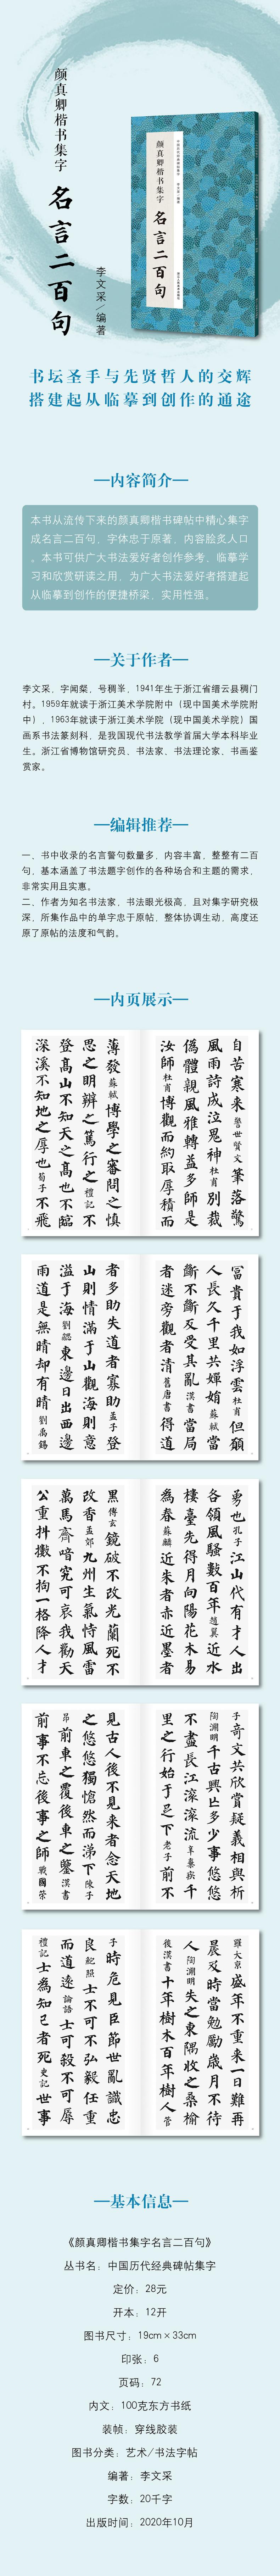 颜真卿楷书集字
名言二百句
李文采/编著
颜真卿楷书集字
名言二百句
书坛圣手与先贤哲人的交辉
搭建起从临摹到创作的通途
内容简介
本书从流传下来的颜真卿楷书碑帖中精心集字
成名言二百句，字体忠于原著，内容脍炙人口
。本书可供广大书法爱好者创作参考，临摹学
习和欣赏研读之用，为广大书法爱好者搭建起
从临摹到创作的便捷桥梁，实用性强。
关于作者
村。1959年就读于浙江美术学院附中（现中国美术学院附
中），1963年就读于浙江美术学院（现中国美术学院）国
画系书法篆刻科，是我国现代书法教学首届大学本科毕业
生。浙江省博物馆研究员、书法家、书法理论家、书画鉴
赏家。
编辑推荐
一、书中收录的名言警句数量多，内容丰富，整整有二百
句，基本涵盖了书法题字创作的各种场合和主题的需求，
非常实用且实惠。
二、作者为知名书法家，书法眼光极高，且对集字研究极
深，所集作品中的单字忠于原帖，整体协调生动，高度还
原了原帖的法度和气韵。
内页展示
自苦寒来 警世贤文 筆落驚
風雨詩成泣鬼神 杜甫 別裁
偽體親風雅轉益多師是
汝師 杜甫 博觀而約取厚積而
薄發 蘇軾 博學之審問之慎
思之明辨之篤行之 禮記 不
登高山不知天之高也不臨
深溪不知地之厚也 荀子 不飛
富貴于我如浮雲 杜甫 但願
人長久千里共嬋娟 蘇軾 當
斷不斷反受其亂 漢書 當局
者迷旁觀者清 舊唐書 得道
者多助失道者寡助 孟子 登
山則情滿于山觀海則意
溢于海 劉勰 東邊日出西邊
雨道是無晴却有晴 劉禹錫
勇也 孔子 江山代有才人出
各領風騷數百年 趙翼 近水
樓臺先得月向陽花木易
為春 蘇麟 近朱者赤近墨者
黑 傅玄 鏡破不改光蘭死不
改香 孟郊 九州生氣恃風雷
萬馬齊喑究可哀我勸天
公重抖擻不拘一格降人才
子 奇文共欣賞疑義相與析
陶淵明 千古興亡多少事悠悠
不盡長江滾滾流 辛棄疾 千
里之行始于足下 老子 前不
見古人後不見来者念天地
之悠悠獨愴然而涕下 陳子
昂 前車之覆後車之鑒 漢書
前事不忘後事之師 戰國策
羅大京 盛年不重来一日難再
晨及時當勉勵歲月不待
人 陶淵明 失之東隅收之桑榆
後漢書 十年樹木百年樹人 管
子 時危見臣節世亂識忠
良 鮑照 士不可不弘毅任重
而道遠 論語 士可殺不可辱
禮記 士為知己者死 史記 世事
基本信息
《颜真卿楷书集字名言二百句》
丛书名：中国历代经典碑帖集字
定价：28元
开本：12开
图书尺寸：19cm×33cm
印张：6
页码：72
内文：100克东方书纸
装帧：穿线胶装
图书分类：艺术/书法字帖
编著：李文采
字数：20千字
出版时间：2020年10月